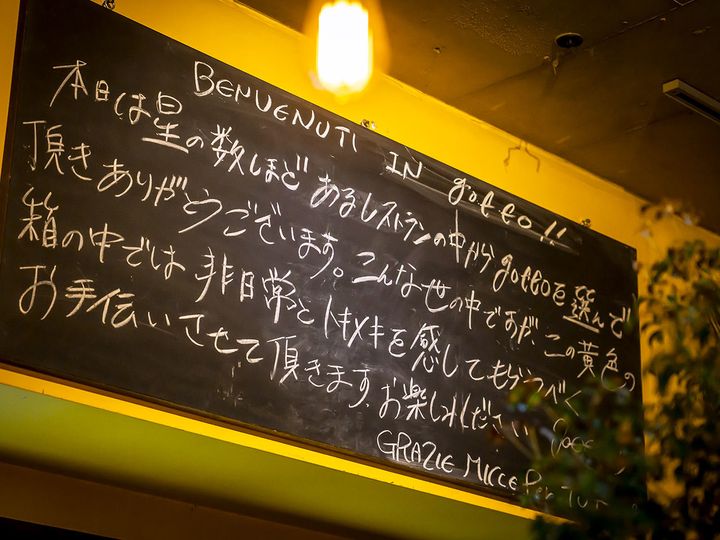 BENVENUTI IN gotto!!
本日は星の数ほどあるレストランの中からgottoを選んで
頂きありがとうございます。こんな世の中ですが、この黄色の
箱の中では非日常とトキメキを感じてもらうべく
お手伝いさせて頂きます。お楽しみください
GRAZIE MILLE Per TUTT